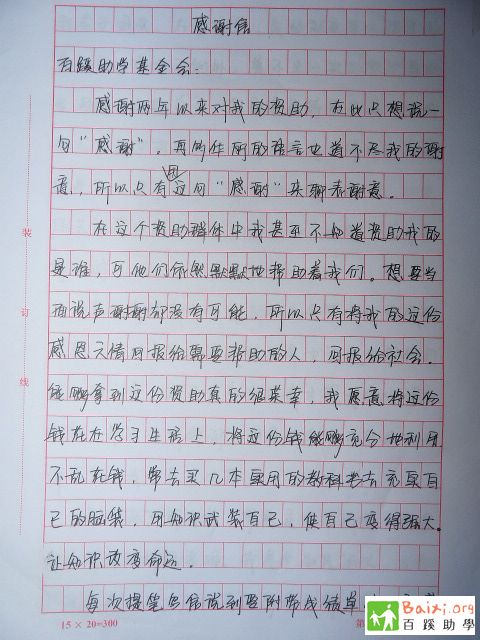 感谢信
百蹊助学基金会:
感谢两年以来对我的资助,在此只想说一
句“感谢”,再多华丽的语言也道不尽我的谢
意,所以只有用这句“感谢”来聊表谢意。
在这个资助群体中我甚至不知道资助我的
是谁,可他们依然默默地帮助着我们。想要当
面说声谢谢都没有可能,所以只有将我的这份
感恩之情回报给需要帮助的人,回报给社会。
能够拿到这份资助真的很荣幸,我愿意将这份
钱花在学习生活上,将这份钱能够充分地利用
不乱花钱,常去买几本实用的教科书去充实自
己的脑袋,用知识武装自己,使自己变得强大。
让知识改变命运。
每次提笔写信说到要附带成绩单
装
订
线
15 × 20=300
第
Baixi.org
百蹊助學